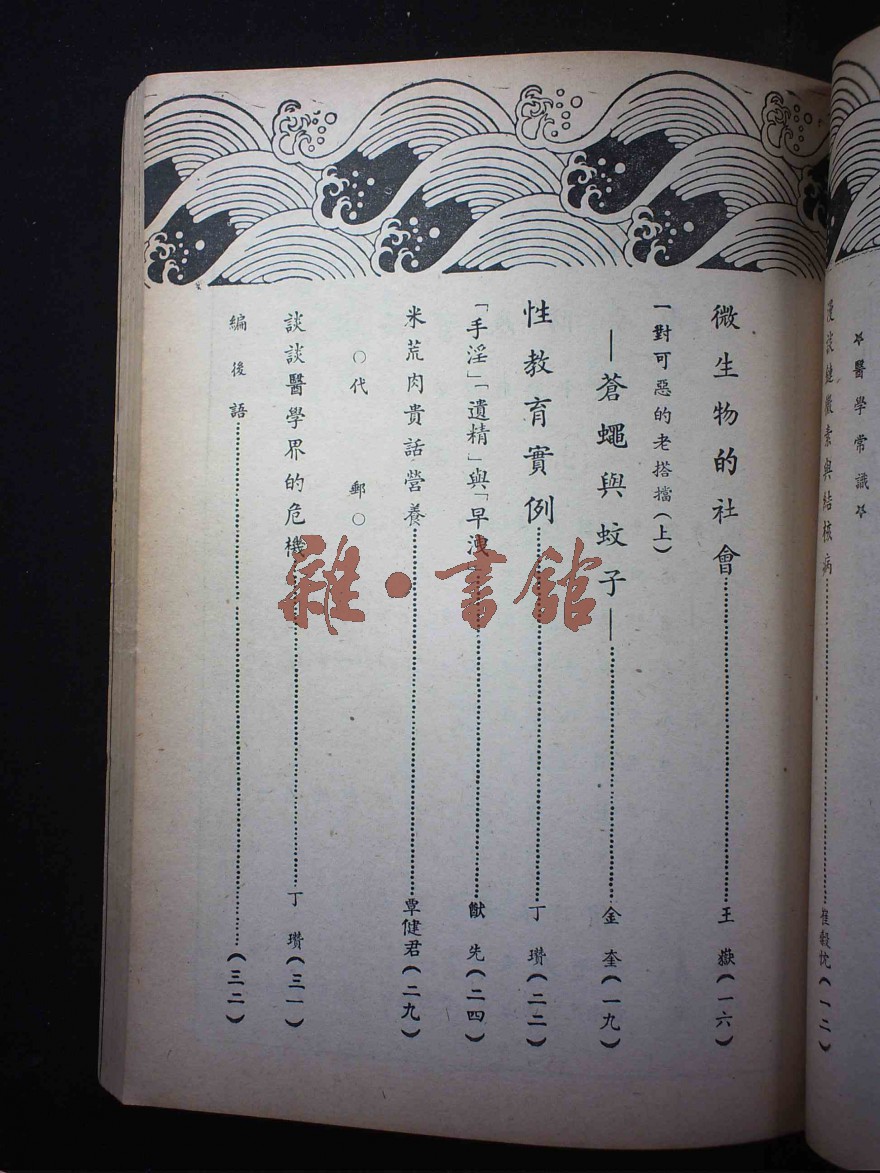 ☆醫學常識☆
漫談鏈黴素與結核病……崔穀忱(一二)
微生物的社會……王嶽(一六)
一對可惡的老搭擋(上)
—蒼蠅與蚊子—……金奎(一九)
性教育實例……丁瓚(二二)
「手淫」「遺精」與「早洩」……猷先(二四)
米荒肉貴話營養……覃健君(二九)
○代郵○
談談醫學界的危機……丁瓚(三一)
編後語……(三二)
雜·書館